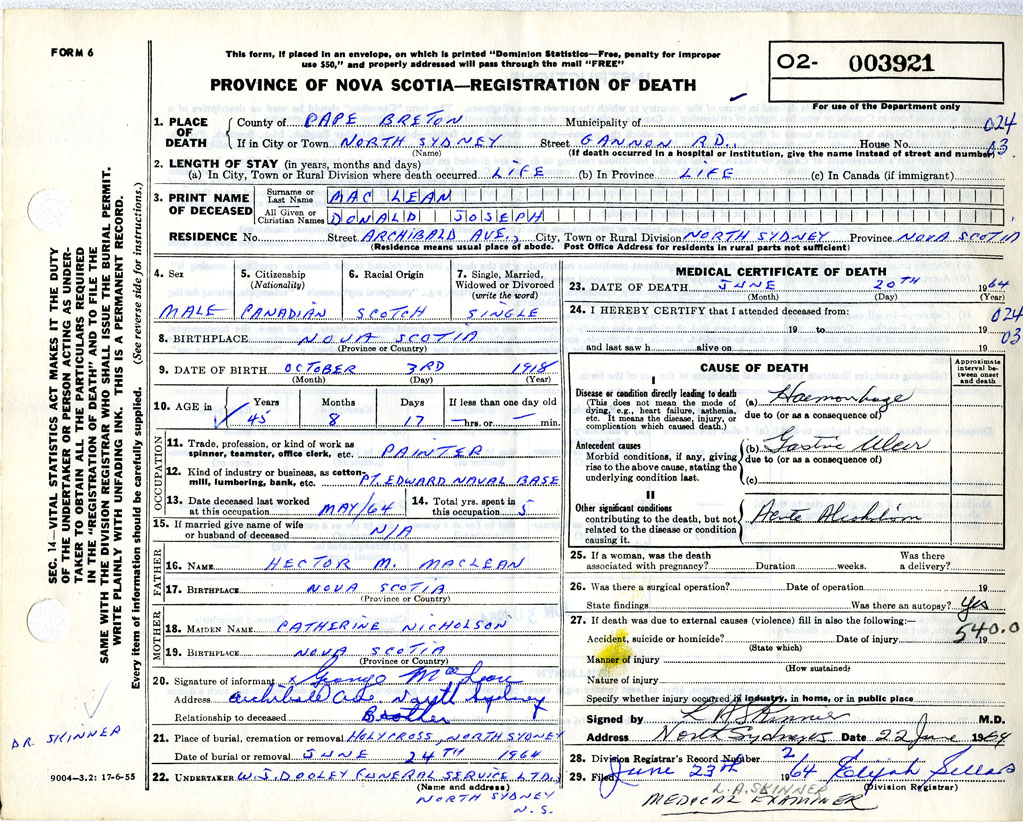 FORM 6
This form, if placed in an envelope, on which is printed "Dominion Statistics—Free, penalty for improper
use $50," and properly addressed will pass through the mail "FREE"
PROVINCE OF NOVA SCOTIA—REGISTRATION OF DEATH
02- 003921
For use of the Department only
1. PLACE OF DEATH County of CAPE BRETON Municipality of 024
If in City or Town NORTH SYDNEY Street GANNON RD., House No. 03.
(Name) (If death occurred in a hospital or institution, give the name instead of street and number)
2. LENGTH OF STAY (in years, months and days)
(a) In City, Town or Rural Division where death occurred LIFE (b) In Province LIFE (c) In Canada (if immigrant)
3. PRINT NAME OF DECEASED Surname or Last Name MAC LEAN
All Given or Christian Names DONALD JOSEPH
RESIDENCE No. Street ARCHIBALD AVE., City, Town or Rural Division NORTH SYDNEY Province NOVA SCOTIA
(Residence means usual place of abode. Post Office Address for residents in rural parts not sufficient)
4. Sex MALE
5. Citizenship (Nationality) CANADIAN
6. Racial Origin SCOTCH
7. Single, Married, Widowed or Divorced (write the word) SINGLE
8. BIRTHPLACE NOVA SCOTIA
(Province or Country)
9. DATE OF BIRTH OCTOBER 3RD 1918
(Month) (Day) (Year)
10. AGE in Years Months Days If less than one day old
45 8 17 — hrs. or — min.
OCCUPATION
11. Trade, profession, or kind of work as spinner, teamster, office clerk, etc. PAINTER
12. Kind of industry or business, as cotton-mill, lumbering, bank, etc. PT. EDWARD NAVAL BASE
13. Date deceased last worked at this occupation MAY/64
14. Total yrs. spent in this occupation 5
15. If married give name of wife or husband of deceased N/A
FATHER
16. NAME HECTOR M. MACLEAN
17. BIRTHPLACE NOVA SCOTIA
(Province or Country)
MOTHER
18. MAIDEN NAME CATHERINE NICHOLSON
19. BIRTHPLACE NOVA SCOTIA
(Province or Country)
20. Signature of informant x George MacLean
Address Archibald Ave North Sydney
Relationship to deceased Brother
21. Place of burial, cremation or removal HOLY CROSS, NORTH SYDNEY
Date of burial or removal JUNE 24TH 1964
22. UNDERTAKER W. J. DOOLEY FUNERAL SERVICE LTD.,
(Name and address)
NORTH SYDNEY
N.S.
MEDICAL CERTIFICATE OF DEATH
23. DATE OF DEATH JUNE 20TH 1964
(Month) (Day) (Year)
24. I HEREBY CERTIFY that I attended deceased from: 024
19 to 19 03
and last saw h alive on 19
CAUSE OF DEATH
Approximate interval between onset and death
I
Disease or condition directly leading to death
(This does not mean the mode of dying, e.g., heart failure, asthenia, etc. It means the disease, injury, or complication which caused death.)
(a) Haemorrhage
due to (or as a consequence of)
Antecedent causes
Morbid conditions, if any, giving rise to the above cause, stating the underlying condition last.
(b) Gastric Ulcer
due to (or as a consequence of)
(c)
II
Other significant conditions
contributing to the death, but not related to the disease or condition causing it.
Acute Alcoholism
25. If a woman, was the death associated with pregnancy? Duration weeks. Was there a delivery?
26. Was there a surgical operation? Date of operation 19
State findings Was there an autopsy? Yes
27. If death was due to external causes (violence) fill in also the following:— 540.0
Accident, suicide or homicide? Date of injury 19
(State which)
Manner of injury
(How sustained)
Nature of injury
Specify whether injury occurred in industry, in home, or in public place
Signed by L A Skinner M.D.
Address North Sydney Date 22 June 1964
28. Division Registrar's Record Number 2
29. Filed June 23rd 1964 Elijah Sellars
(Division Registrar)
L. A. SKINNER
MEDICAL EXAMINER
SEC. 14—VITAL STATISTICS ACT MAKES IT THE DUTY
OF THE UNDERTAKER OR PERSON ACTING AS UNDER-
TAKER TO OBTAIN ALL THE PARTICULARS REQUIRED
IN THE "REGISTRATION OF DEATH" AND TO FILE THE
SAME WITH THE DIVISION REGISTRAR WHO SHALL ISSUE THE BURIAL PERMIT.
WRITE PLAINLY WITH UNFADING INK. THIS IS A PERMANENT RECORD.
Every item of information should be carefully supplied. (See reverse side for instructions.)
DR. SKINNER
9004—3.2: 17-6-55